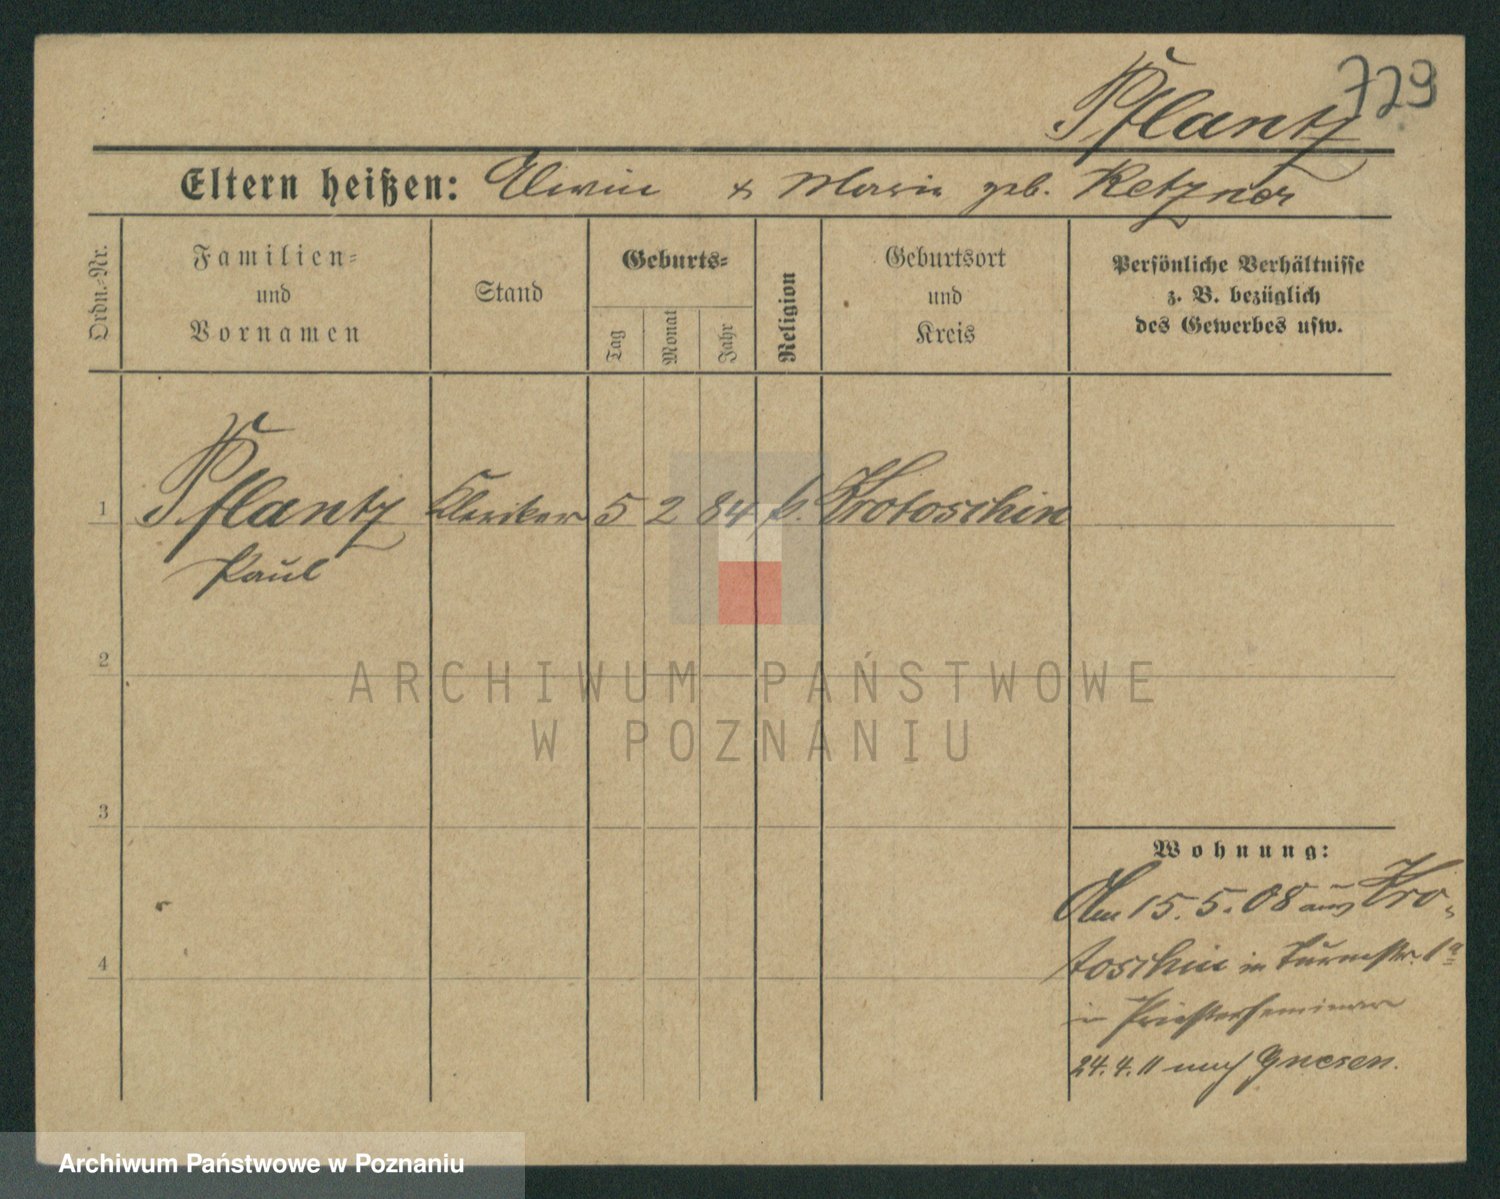 729
Pflantz
Eltern heißen: Edwin & Marie geb. Retzner
Ordn.-Nr.
Familien-
und
Vornamen
Stand
Geburts-
Tag
Monat
Jahr
Religion
Geburtsort
und
Kreis
Persönliche Verhältnisse
z. B. bezüglich
des Gewerbes usw.
1 Pflantz Kleriker 5 2 84 k. Krotoschin
Paul
2
3
4
Wohnung:
Am 15.5.08 aus Kro-
toschin in Turmstr. 1a
in Priesterseminar
24.4.11 nach Gnesen.
ARCHIWUM PAŃSTWOWE
W POZNANIU
Archiwum Państwowe w Poznaniu